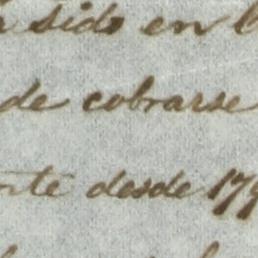 sido en
de cobrarse
nte desde 179